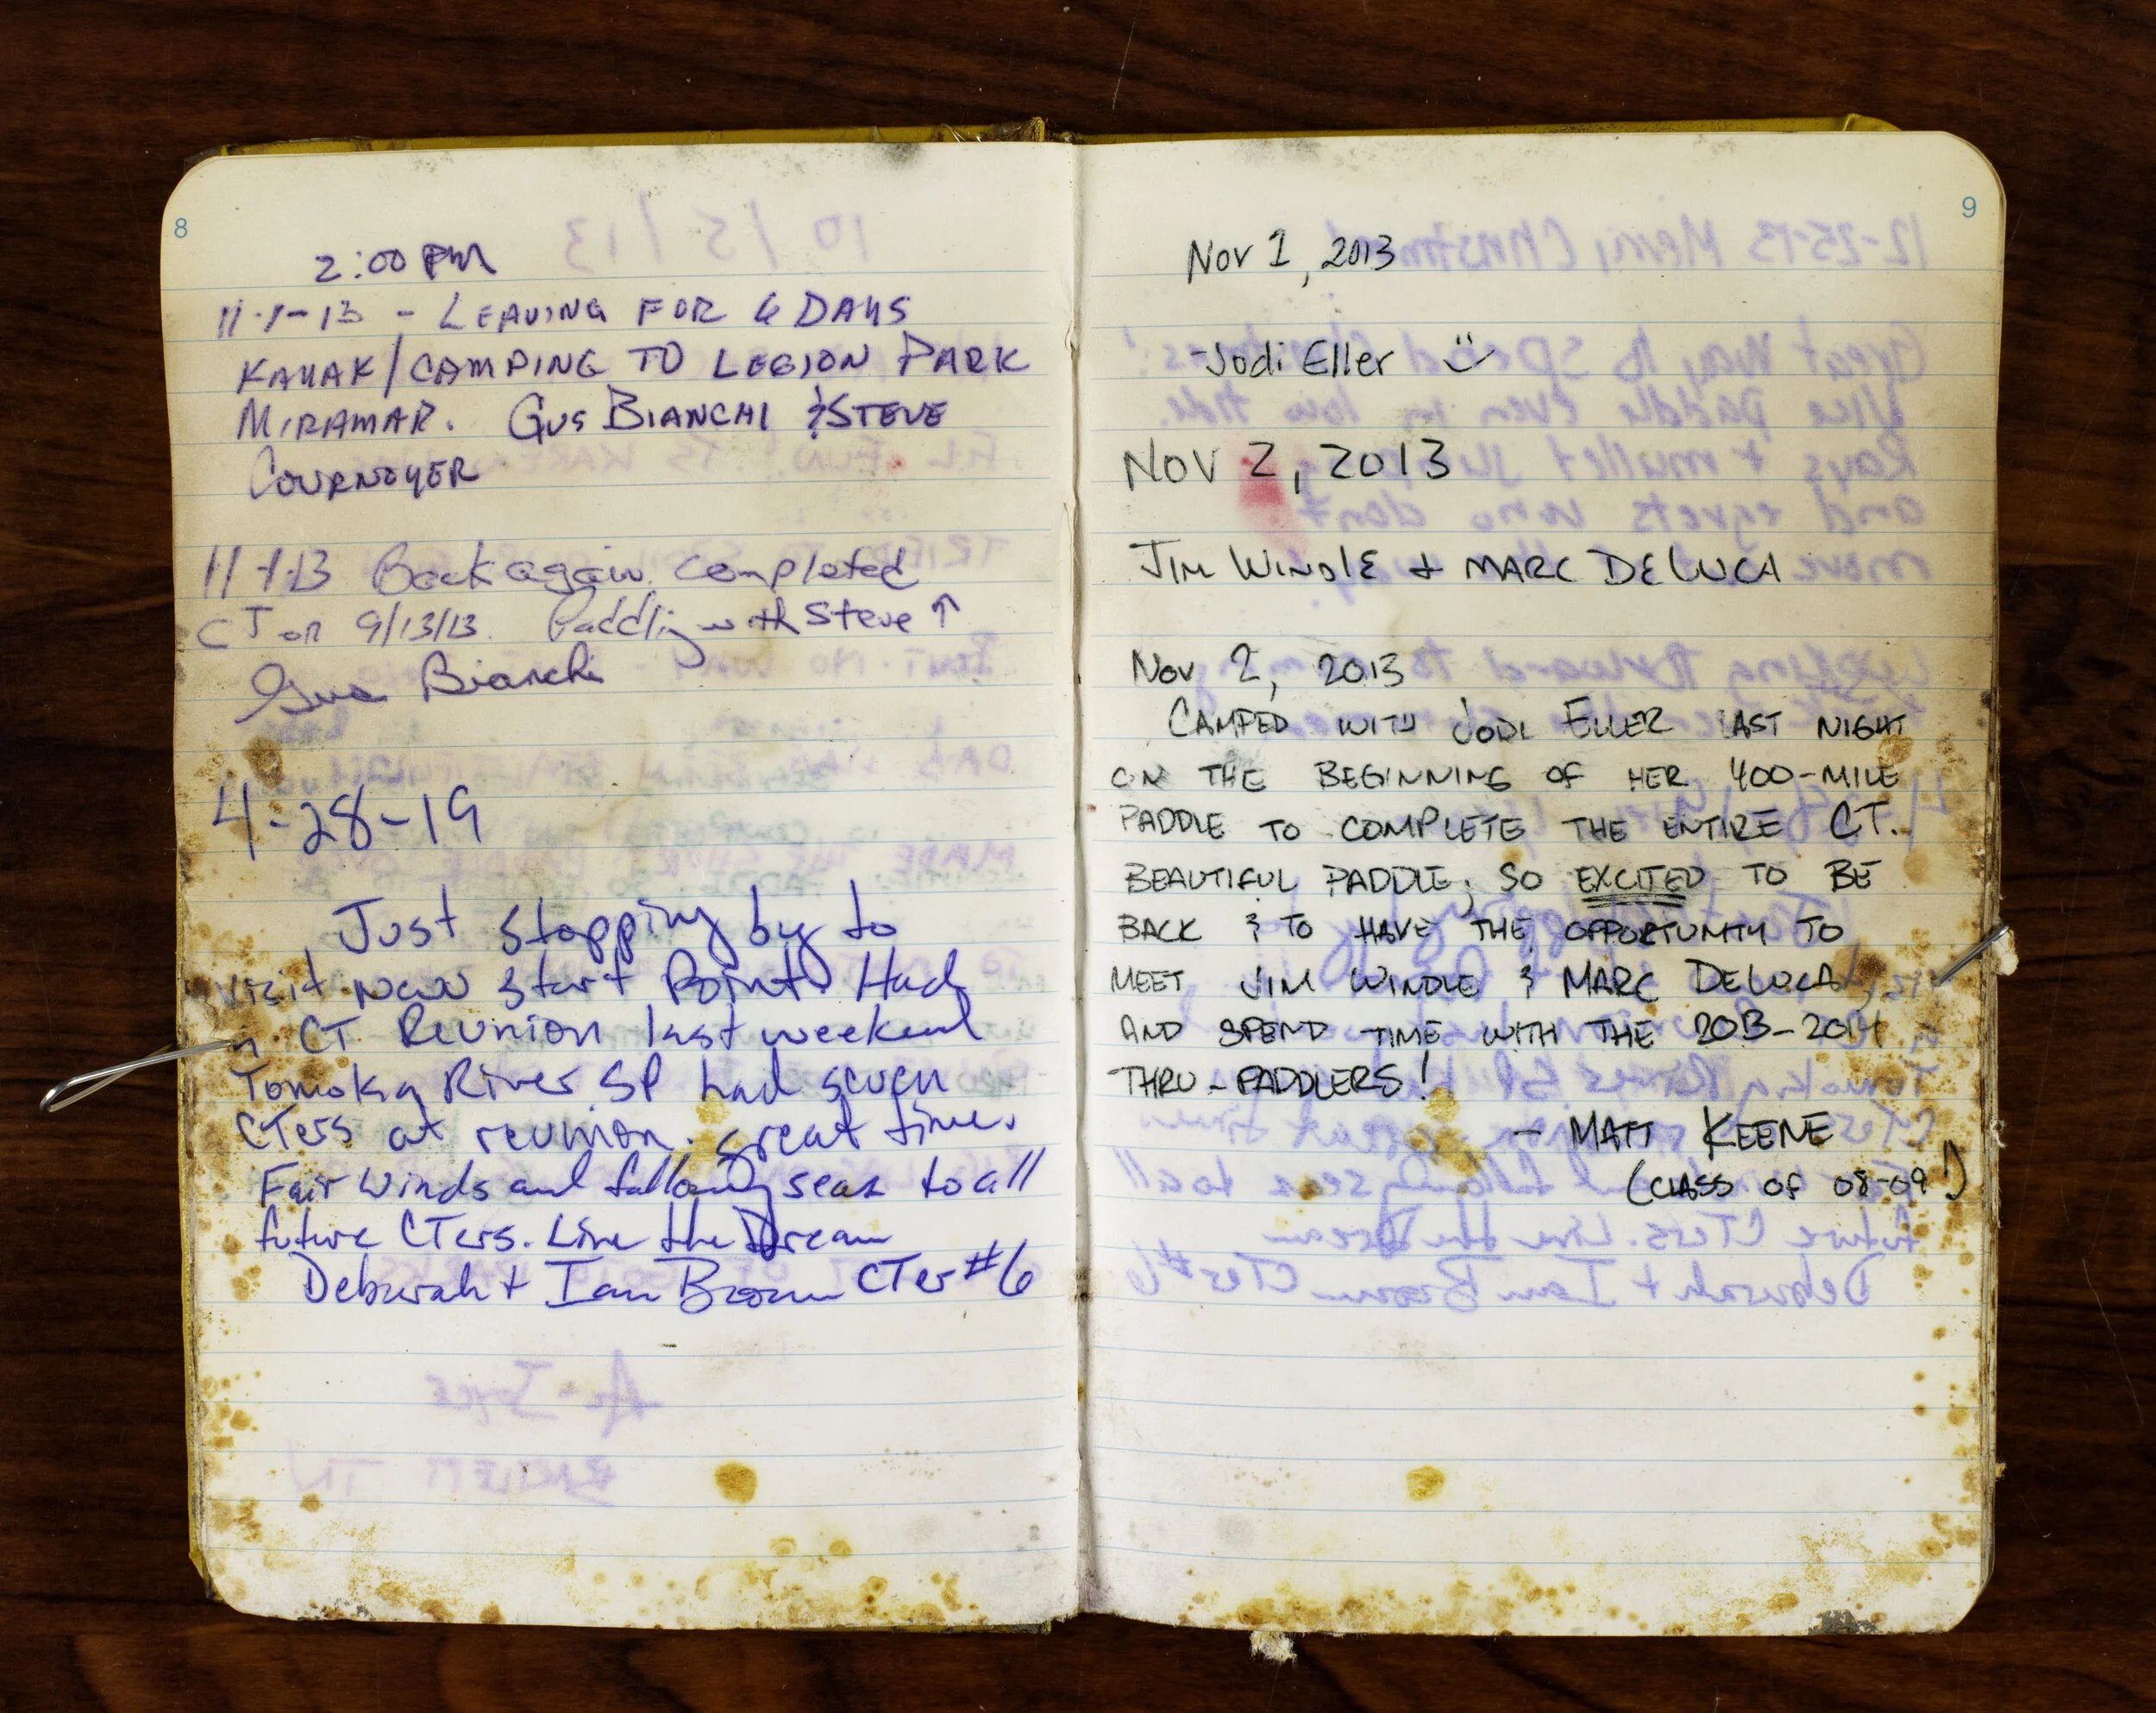 8
2:00 PM
11-1-13 - LEAVING FOR 6 DAYS
KAYAK/CAMPING TO LEGION PARK
MIRAMAR. GUS BIANCHI & STEVE
COURNOYER
11-1-13 Back again. Completed
CT on 9/13/13. Paddling with Steve ↑
Gus Bianchi
4-28-19
Just stopping by to
visit new start Point. Had
a CT Reunion last weekend
Tomoka River SP had seven
CTers at reunion. great time.
Fair winds and following seas to all
future CTers. Live the Dream
Deborah + Ian Brown CTer #6
9
Nov 1, 2013
-Jodi Eller
NOV 2, 2013
JIM WINDLE + MARC DELUCA
Nov 2, 2013
CAMPED WITH JODI ELLER LAST NIGHT
ON THE BEGINNING OF HER 400-MILE
PADDLE TO COMPLETE THE ENTIRE CT.
BEAUTIFUL PADDLE; SO EXCITED TO BE
BACK & TO HAVE THE OPPORTUNITY TO
MEET JIM WINDLE & MARC DELUCA,
AND SPEND TIME WITH THE 2013-2014
THRU-PADDLERS!
- MATT KEENE
(CLASS OF 08-09!)